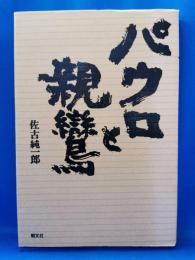 パウロ
と
親鸞
佐古純一郎
朝文社